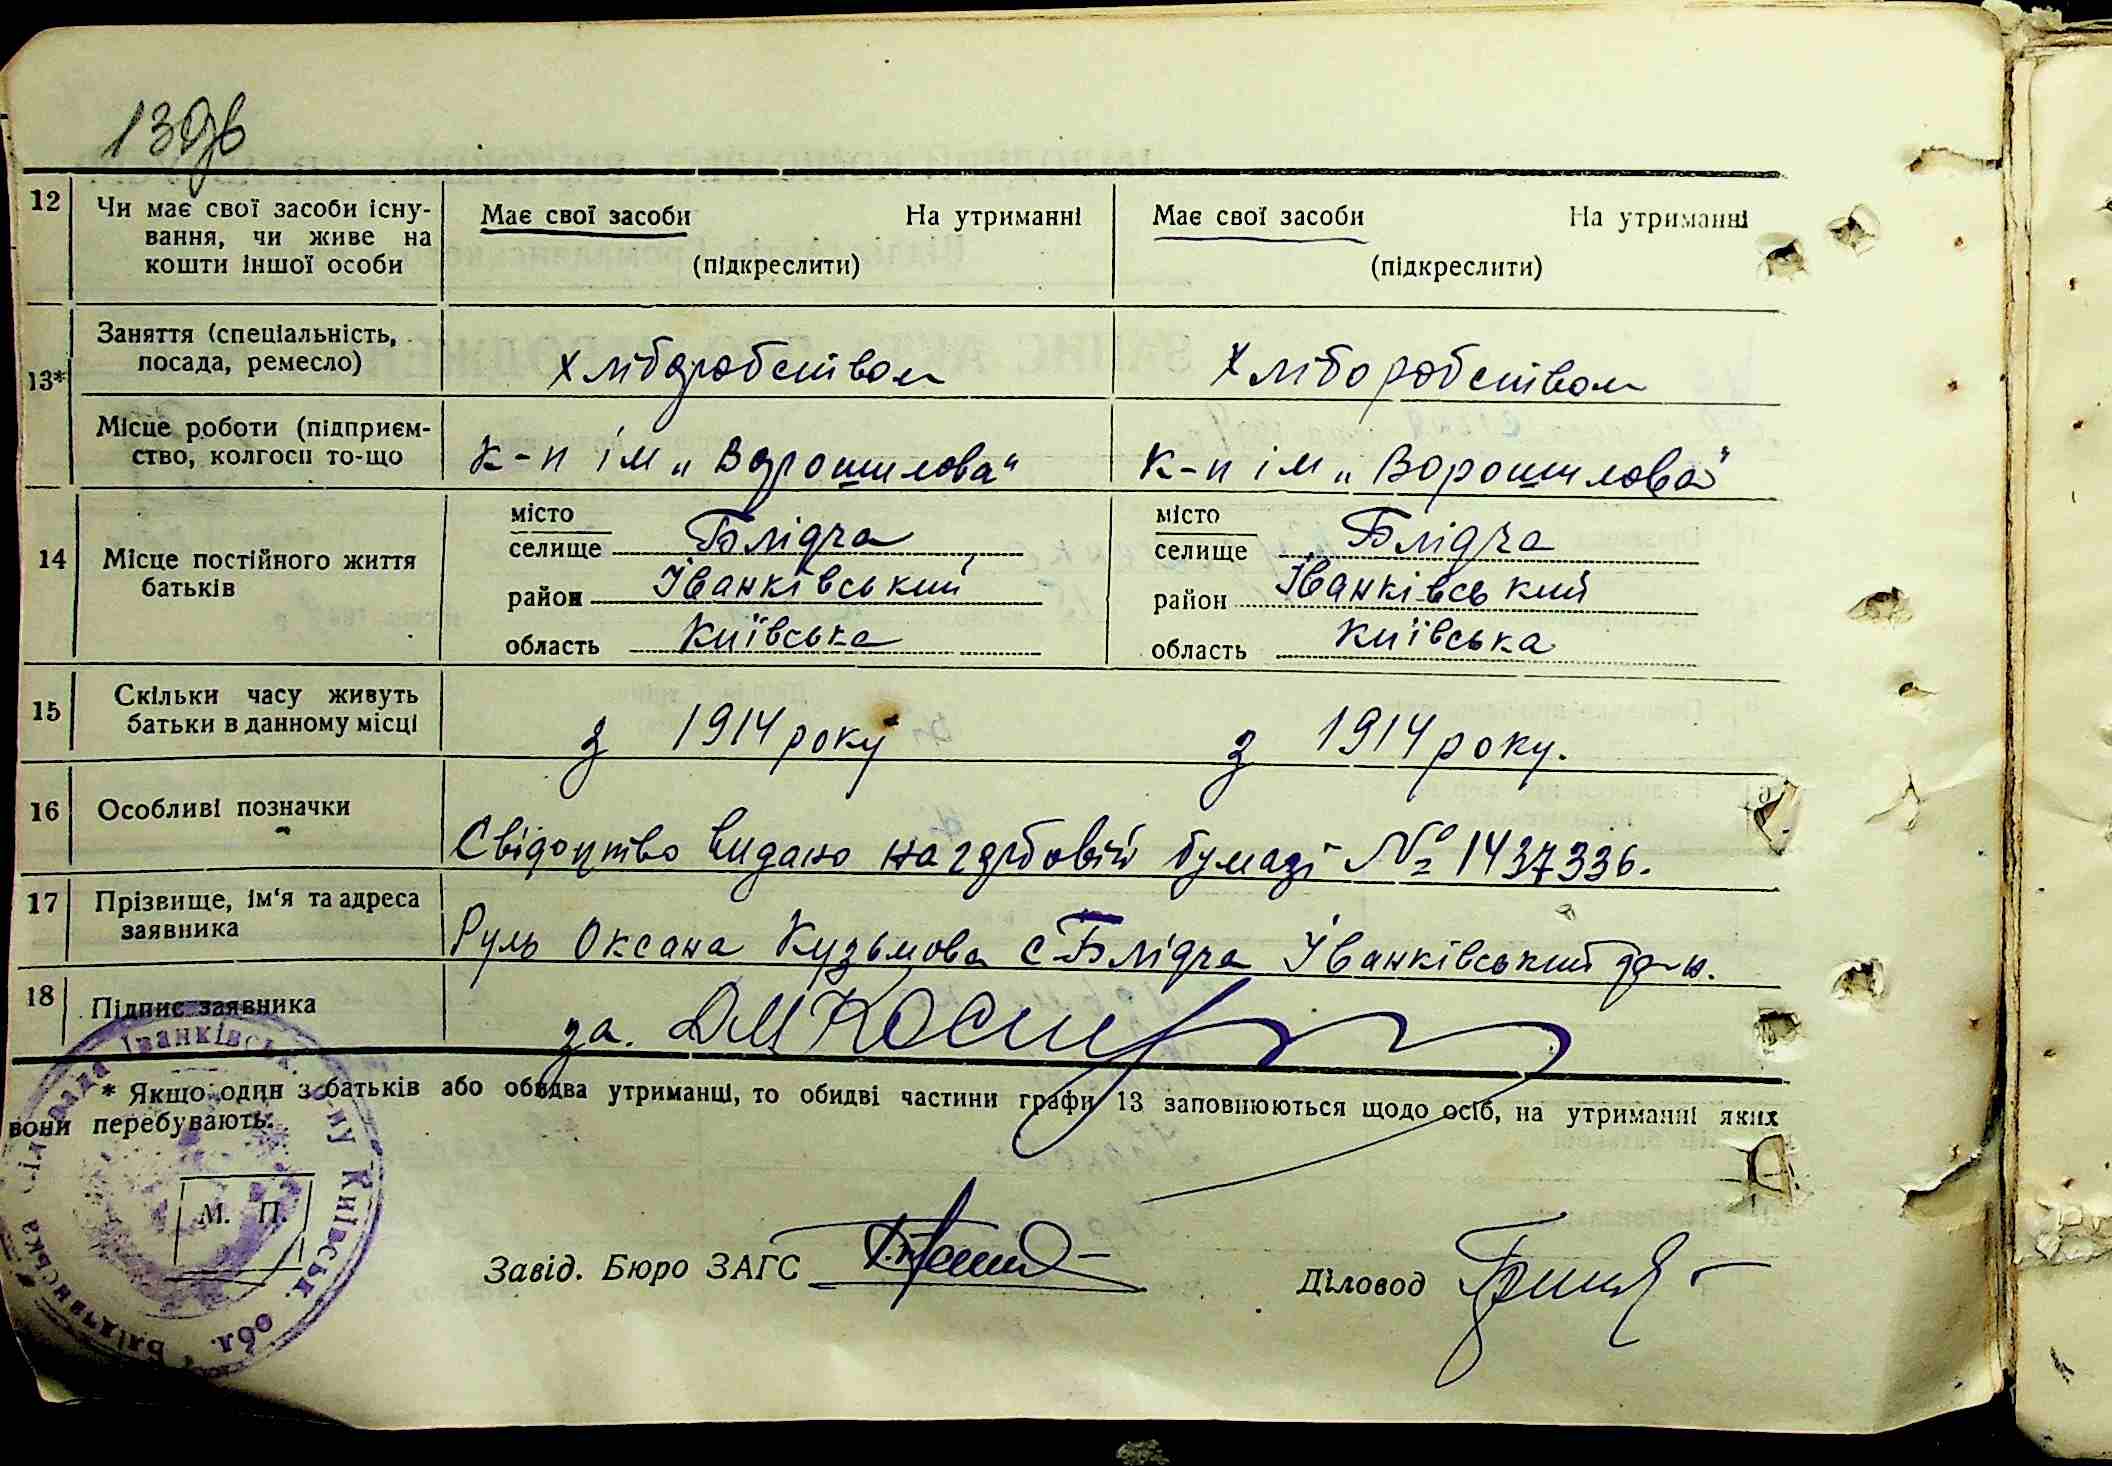 12
Чи має свої засоби існу-
вання, чи живе на
кошти іншої особи
Має свої засоби На утриманні
(підкреслити)
Має свої засоби На утриманні
(підкреслити)
13*
Заняття (спеціальність,
посада, ремесло)
Хліборобством
Хліборобством
Місце роботи (підприєм-
ство, колгосп то-що
к-п ім „Ворошилова“
к-п ім „Ворошилова“
14
Місце постійного життя
батьків
місто
селище Блідча
район Іванківський
область Київська
місто
селище Блідча
район Іванківський
область Київська
15
Скільки часу живуть
батьки в данному місці
з 1914 року
з 1914 року.
16
Особливі позначки
Свідоцтво видано на гербовій бумазі № 1437336.
17
Прізвище, ім‘я та адреса
заявника
Руль Оксана Кузьмова с Блідча Іванківський
18
Підпис заявника
за.
* Якщо один з батьків або обидва утриманці, то обидві частини графи 13 заповнюються щодо осіб, на утриманні яких
вони перебувають.
М. П.
Блідчанська сільрада Іванківськ. р-ну Київськ. обл.
Завід. Бюро ЗАГС
Діловод